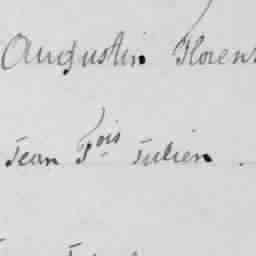 Augustin Floren
Jean F.ois Julien .